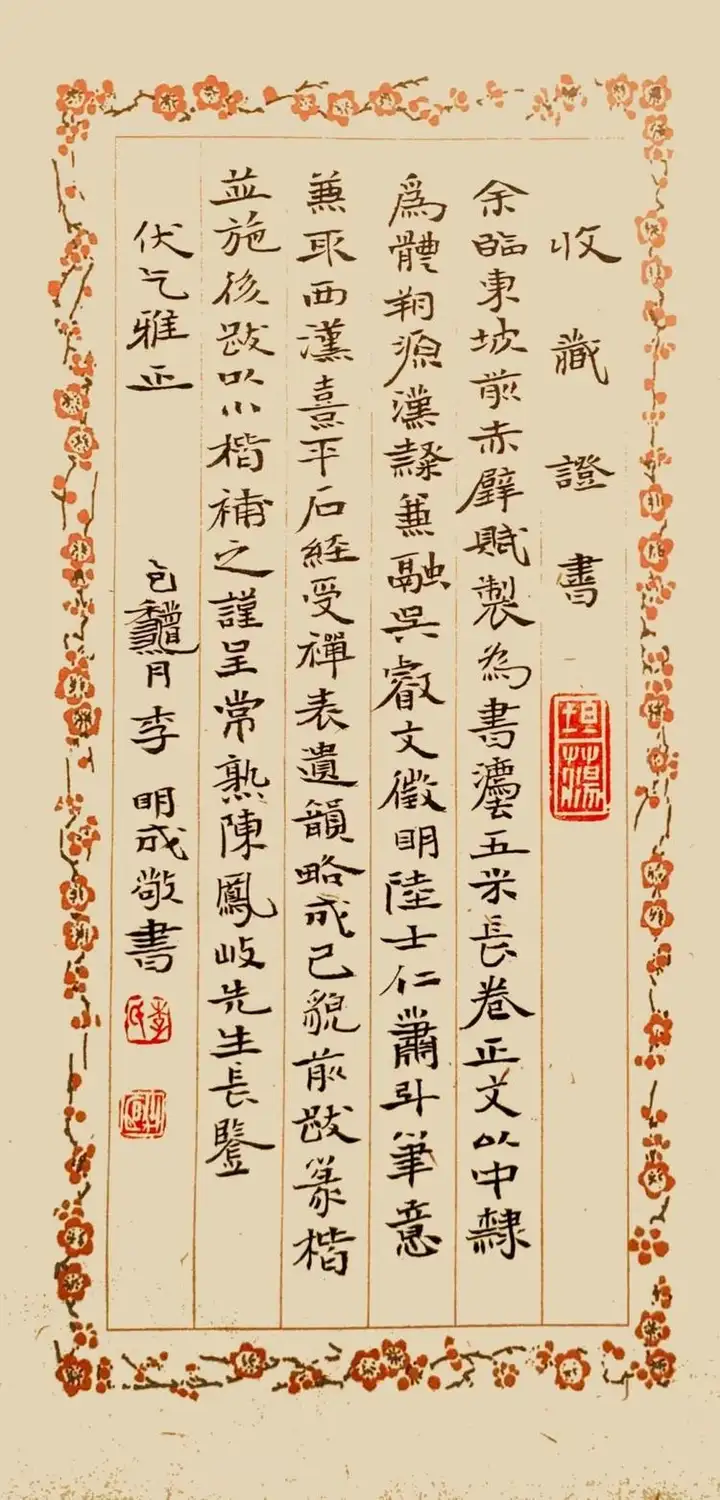 收藏證書
余臨東坡前赤壁賦製為書灋五米長卷正文以中隸
為體朔源漢隸兼融吳叡文徵明陸士仁蕭斗筆意
兼取西漢熹平石經受禪表遺韻略成已貌前跋篆楷
並施後跋以小楷補之謹呈常熟陳鳳岐先生長鑒
伏乞雅正
月李明成敬書